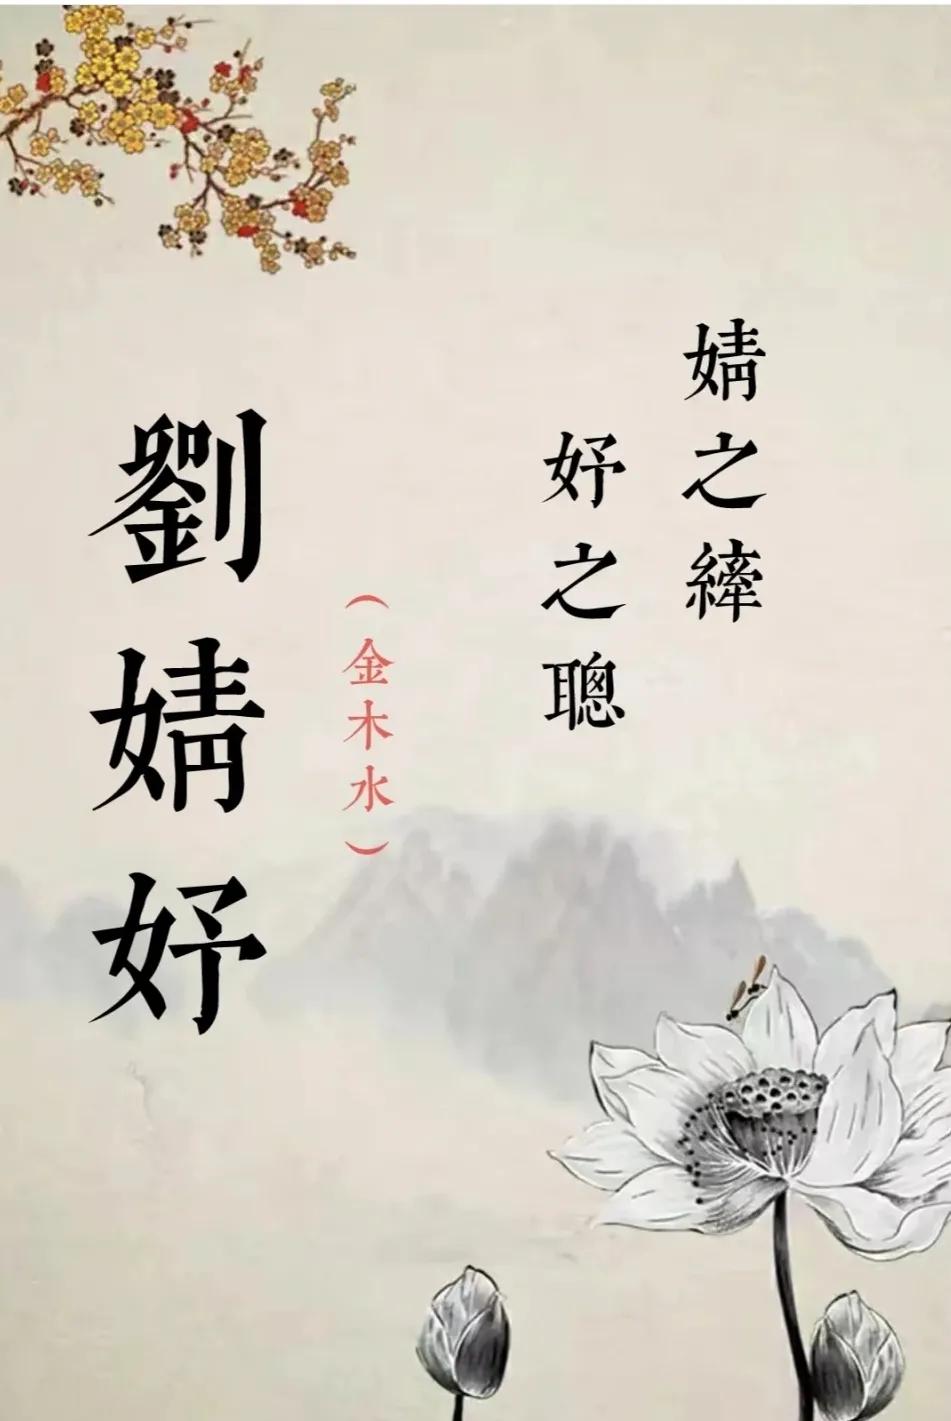 婧之繂
妤之聰
（金木水）
劉婧妤